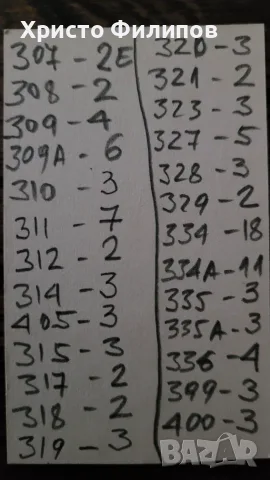 Христо Филипов
307 - 2E
308 - 2
309 - 4
309A - 6
310 - 3
311 - 7
312 - 2
314 - 3
405 - 3
315 - 3
317 - 2
318 - 2
319 - 3
320 - 3
321 - 2
323 - 3
327 - 5
328 - 3
329 - 2
334 - 18
334A - 11
335 - 3
335A - 3
336 - 4
399 - 3
400 - 3
BAZAR